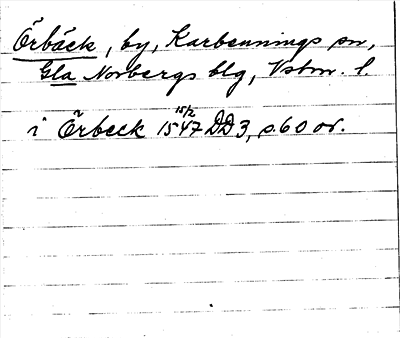 Örbäck, by, Karbennings sn,
Gla Norbergs blg, Vstm. l.
i Örbeck 15/2 1547 DD 3, s. 60 or.